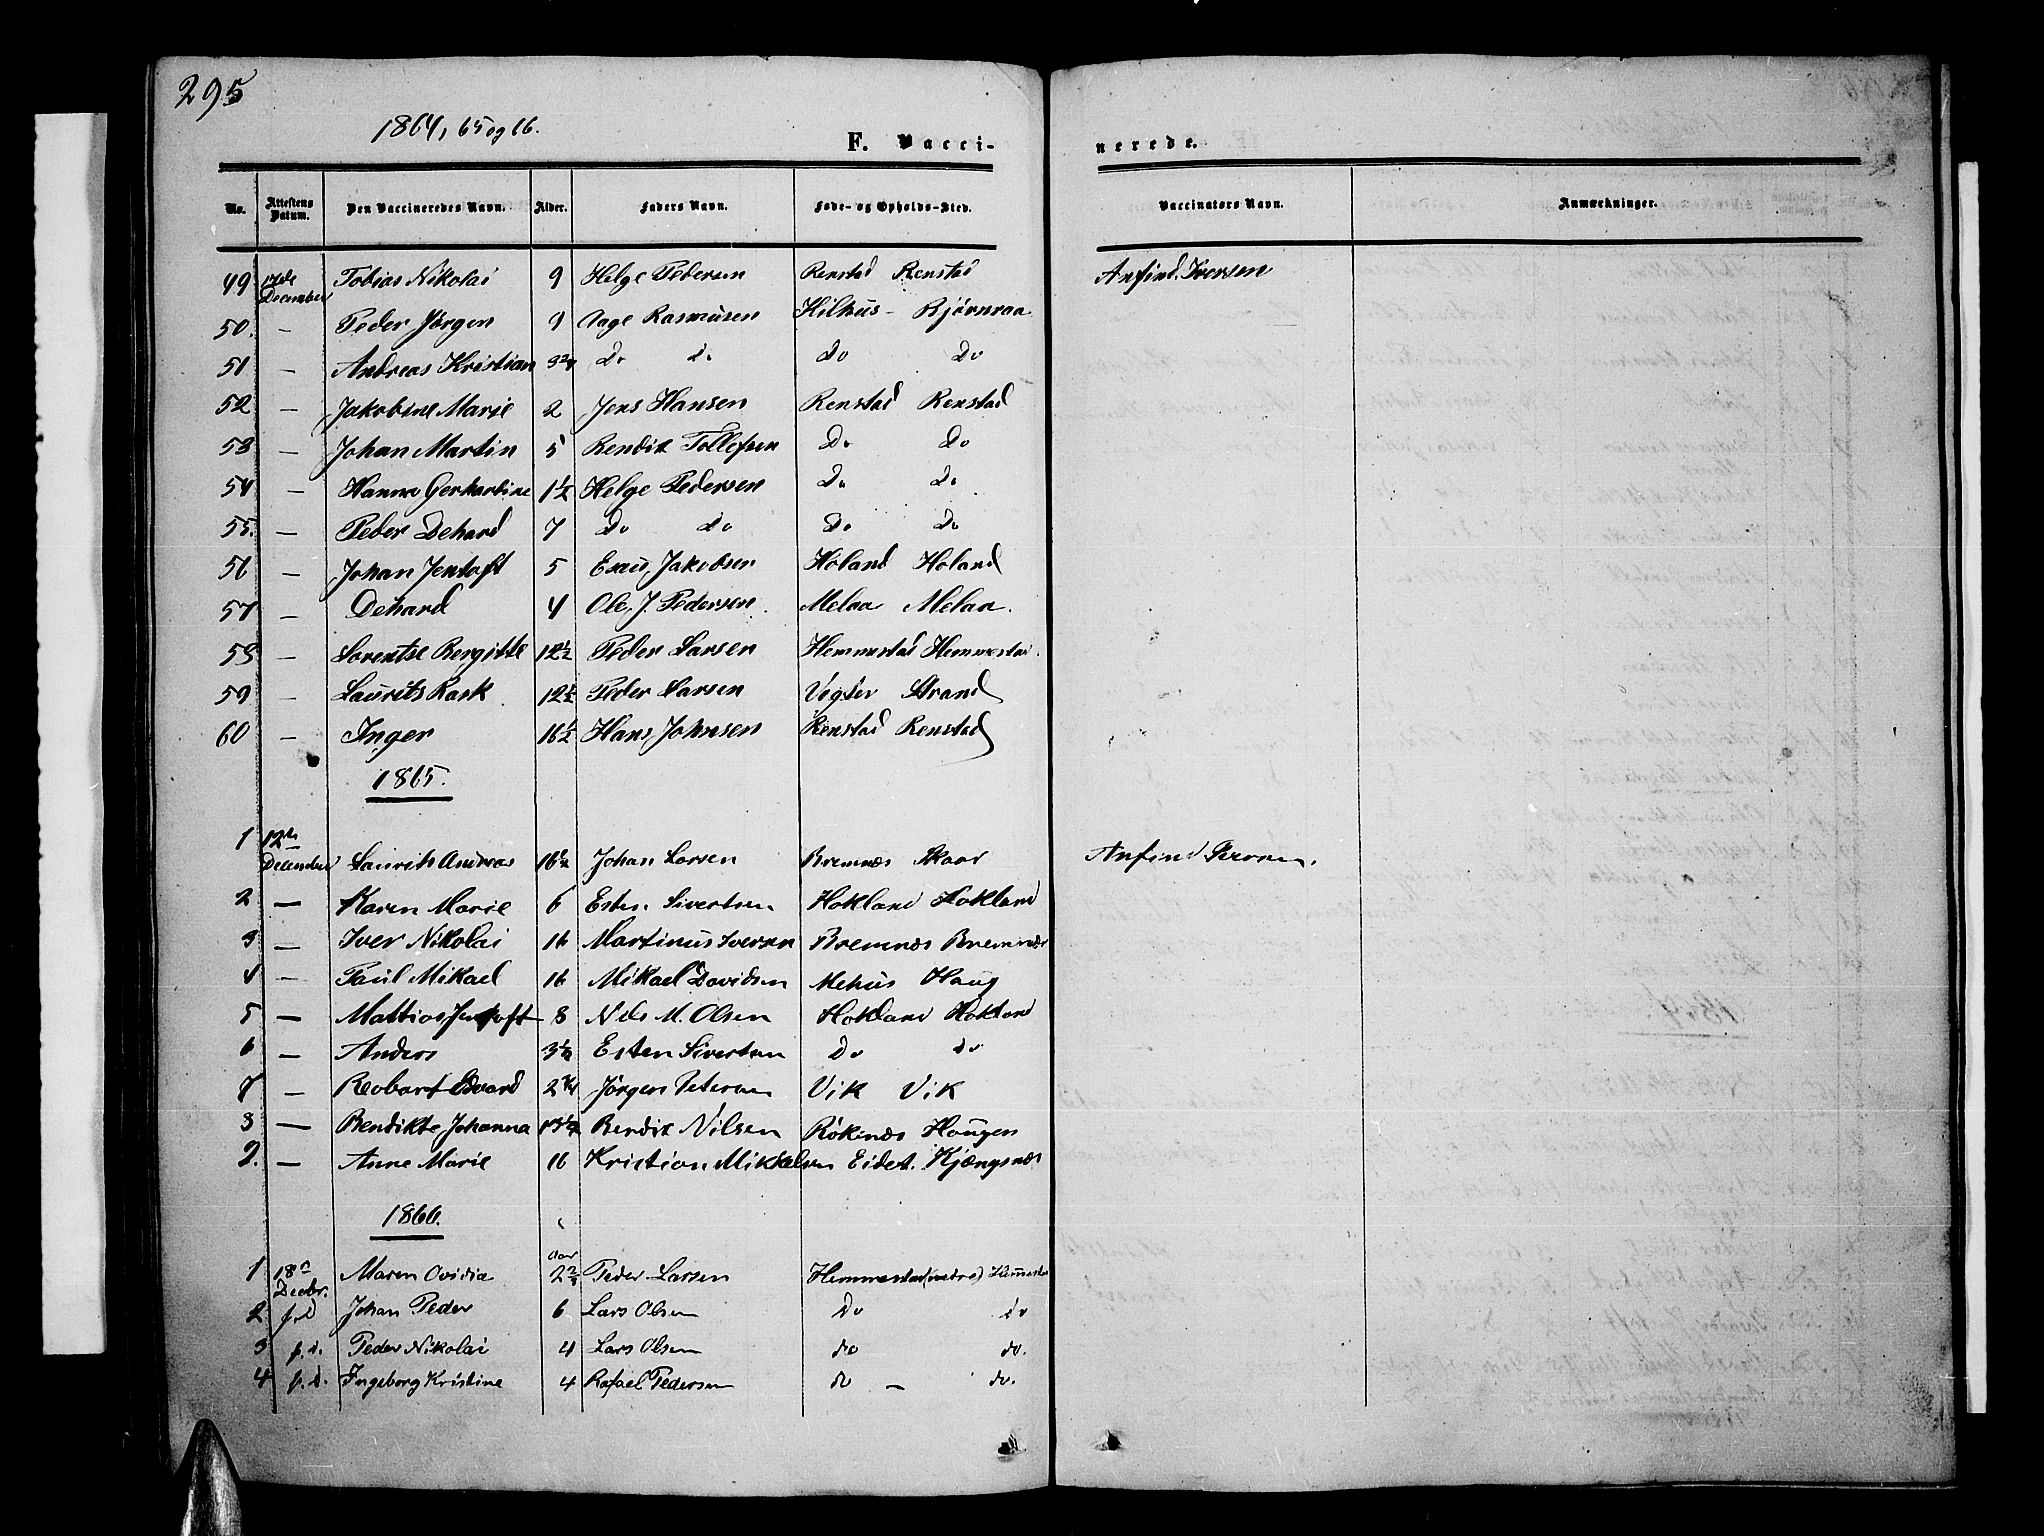 295
1864, 65 og 66.
F. Vacci-
nerede.
No. Attestens Datum. Den Vaccineredes Navn. Alder. Faders Navn. Føde- og Opholds-Sted. Vaccinators Navn. Anmærkninger.
49 17de December Tobias Nikolai 9 Helge Pedersen Renstad Renstad Anfind Iversen
50. — Peder Jørgen 9 Aage Rasmusen Hilhus - Bjørnraa
51 — Andreas Kristian 3 3/4 Do do Do Do
52 — Jakobine Marie 2 Jens Hansen Renstad Renstad
53 — Johan Martin 5 Bendix Tollefsen Do Do
54 — Hanna Gerhardine 1 1/2 Helge Pedersen Do Do
55. — Peder Dehard 7 Do Do Do Do
56 — Johan Jentoft 5 Esau Jakobsen Holand Holand
57 — Dehard 4 Ole J. Pedersen. Melaa Melaa.
58 — Lorentse Bergitte 12 1/2 Peder Larsen Hemmestad Hemmestad.
59 — Laurits Rask 12 1/2 Peder Larsen Strand
60 — Inger 16 1/2 Hans Johnsen Renstad Renstad
1865.
1 12te December Laurits Andreas 16 1/2 Johan Larsen Bremnæs Skaar Anfind Iversen.
2 — Karen Marie 6 Esten Sivertsen Hokland Hokland
3 — Iver Nikolai 16 Martinus Iversen Bremnæs Bremnæs
4 — Paul Mikael 16 Mikael Davidsen Mehus Haug
5 — Mattias Jentoft 8 Nils M. Olsen Hokland Hokland
6 — Anders 3 1/2 Esten Sivertsen Do do
7 — Robart Edvard 2 3/4 Jørgen Petersen Vik Vik
8 — Bendikte Johanna 13 1/2 Bendix Nilsen Røkenæs Haugen
9. — Anne Marie 16 Kristian Mikkelsen Eidet. Kjængsnæs
1866.
1 18de Decbr. Maren Ovidia Aar 2 Peder Larsen Hemmestad (nedre) Hemmestad
2 f.d Johan Peder 6 Lars Olsen Do do
3 f.d. Peder Nikolai 4 Lars Olsen do do.
4 f.d. Ingeborg Kristine 4 Rafael Pedersen do — do.